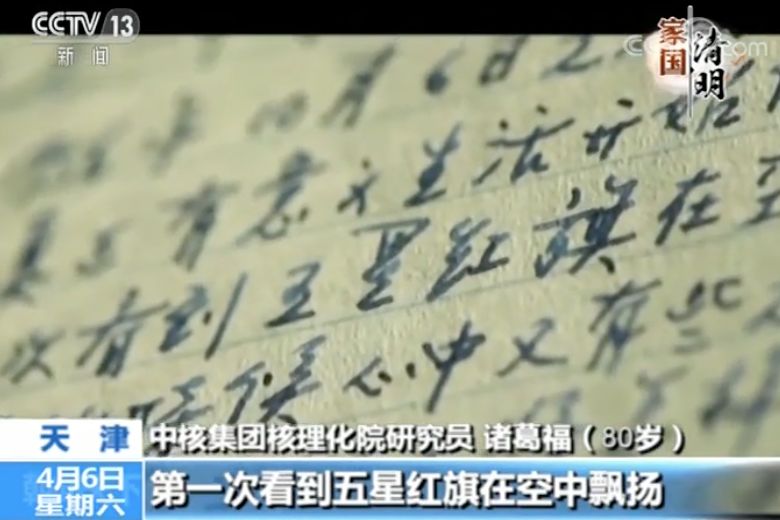 CCTV 13
新闻
家国清明
com
月6日
有意义生活开始
次看到五星红旗在空
时候心中又有些
天津
中核集团核理化院研究员 诸葛福（80岁）
4月6日
星期六
第一次看到五星红旗在空中飘扬